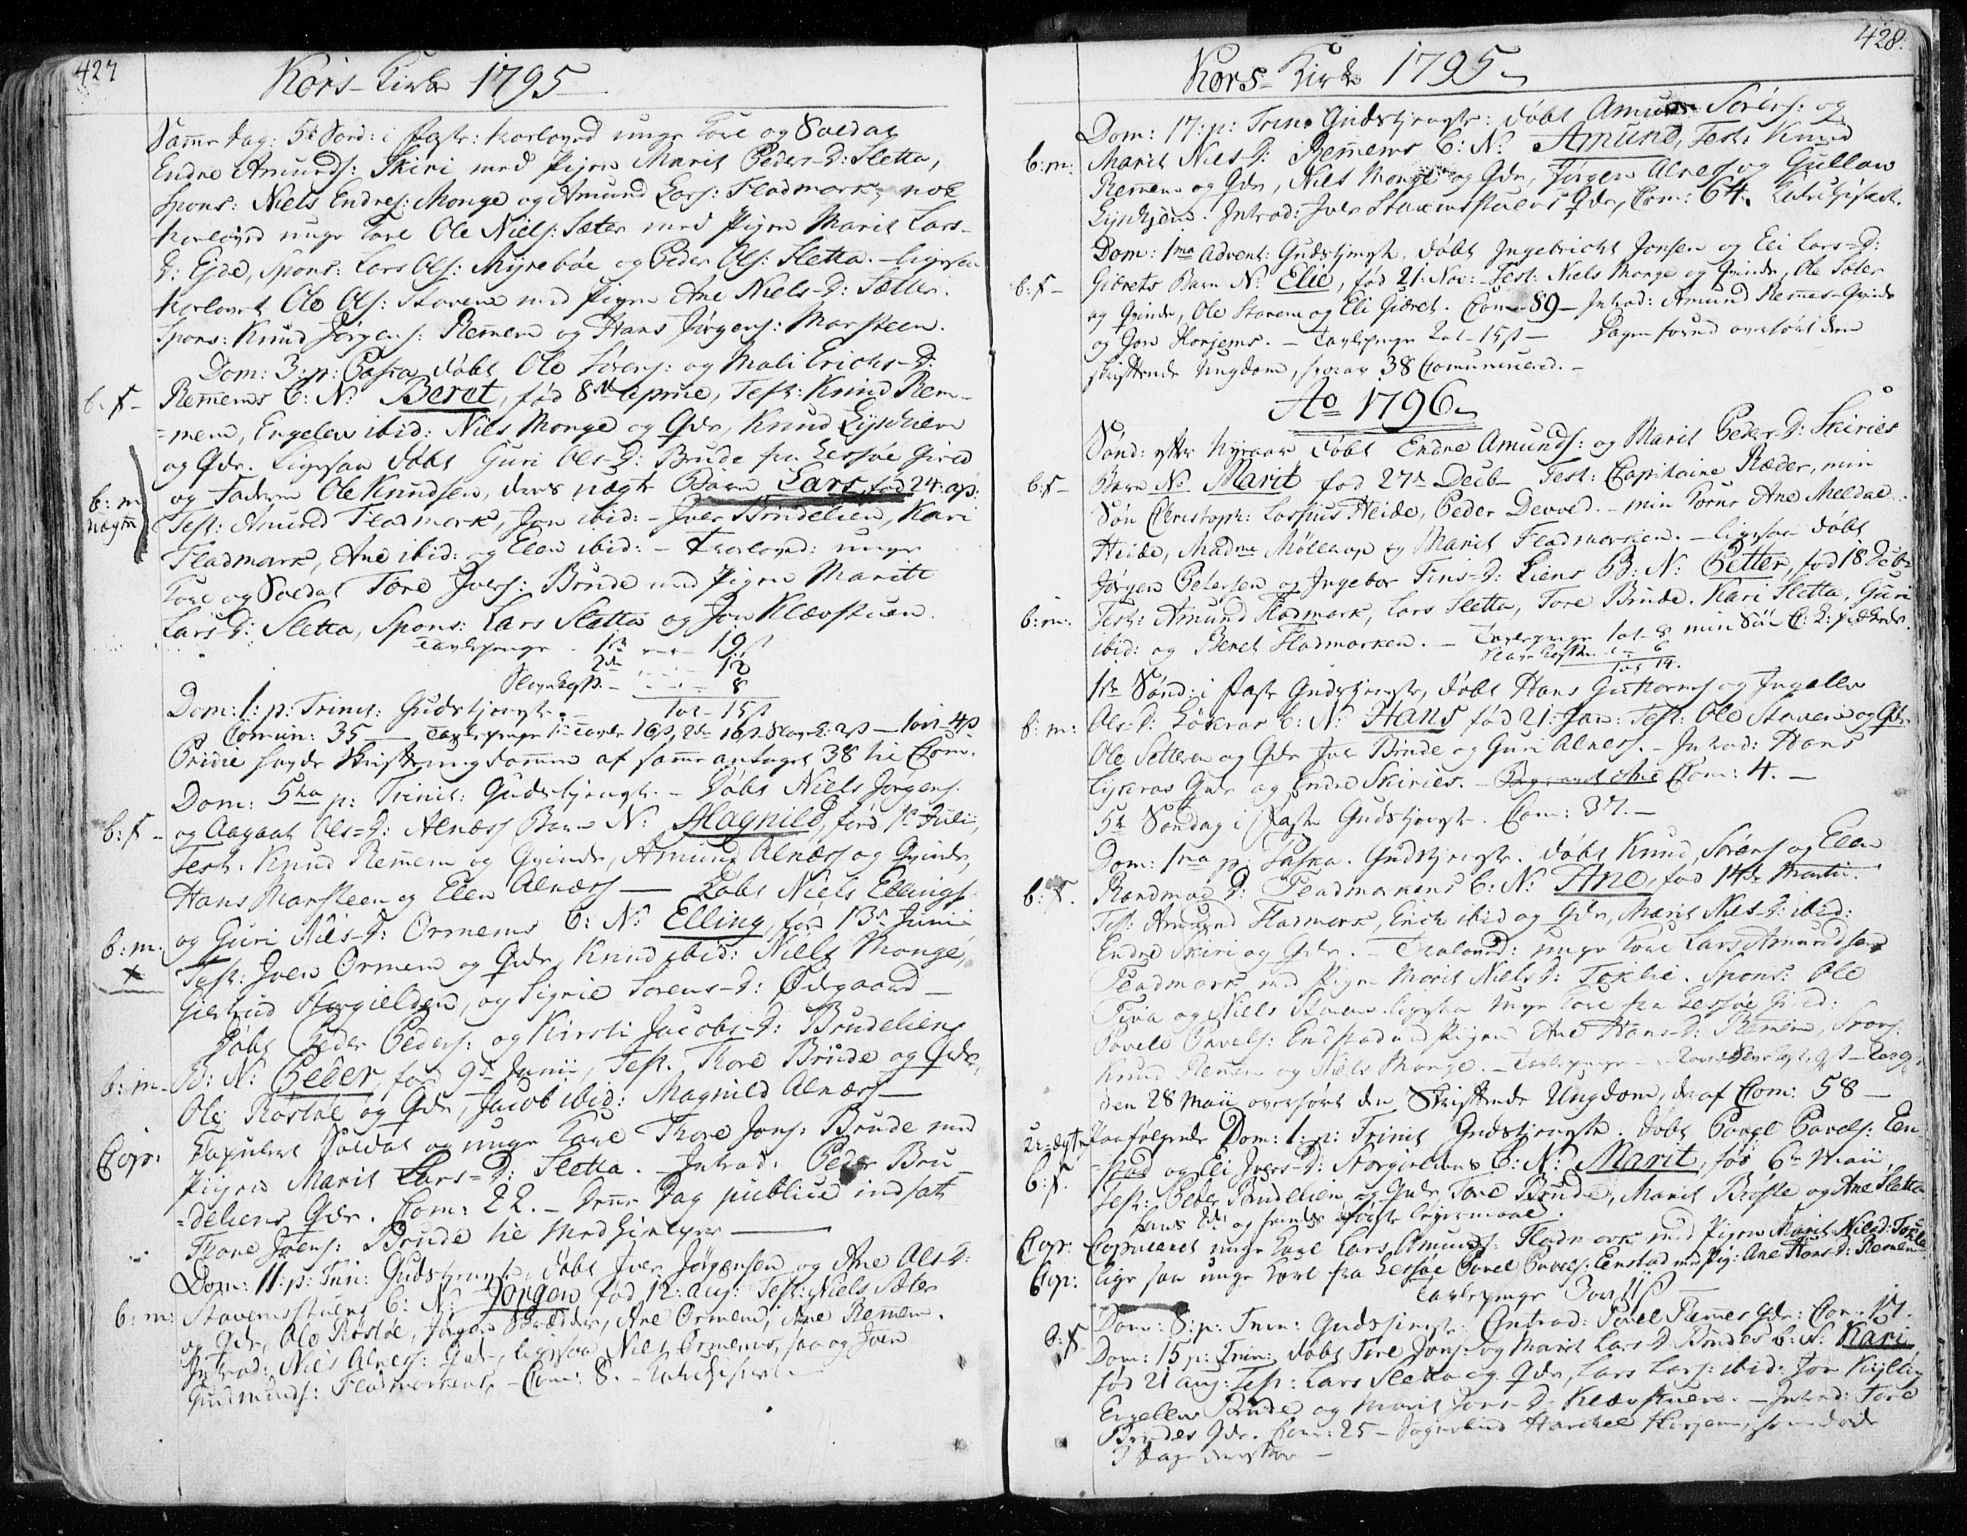 427
Kors-Kirke 1795
Samme Dag: 5te Sønd: i Faste: troloved unge Karl og Soldat
Endre Amunds: Skiri med Pigen Marit Peder-D: Sletta,
Spons: Niels Endres: Monge og Amund Lars: Fladmark, nok
troloved unge Karl Ole Niels: Sæter med Pigen Marit Lars-
D: Ejde, Spons: Lars Ols: Myrebøe og Peder Ols: Sletta. - ligesaa
trolovet Ole Ols: Stavem med Pigen Ane Niels-D: Sætter.
Spons: Knud Jørgens: Remmem og Hans Jørgens: Marsteen.
Dom: 3: p: Paska døbt Ole Sørens: og Mali Erichs-D:
b: f - Remmems b: N: Beret, fød 8de aprile, Test: Knud Rem-
=mem, Engelen ibid: Niels Monge og Qde, Knud Lyschiem
og Qde. Ligesaa døbt Guri Ols-D: Brude fra Lessøe Gield
b: m uægte og Faderen Ole Knudsen, deres uægte Barn Lars, fød 24: ap:
Test: Amund Fladmark, Jon ibid: - Iver Brudelien, Kari
Fladmark, Ane ibid: og Elen ibid: - Troloved: unge
Karl og Soldat Tore Ivers: Brude med Pigen Maritt
Lars-D: Sletta, Spons: Lars Sletta og Jon Klævstuen.
Tavlepenge - 1ste - 19ß
2de - 12
- 8
Dom: 1: p: Trinit: Gudstjeneste. - 1ort - 15ß
Comun: 35 - Tavlepenge 1ste Tavle 16ß, 2de 16ß
hørde Skrifteungdommen af samme antaget 38 til Com.
Dom: 5ta p: Trinit: Gudstjeneste. - Døbt Niels Jørgens:
b: f - og Aagaat Ols-D: Alnæss Barn N: Magnild, fød 1ste Julii,
Test: Knud Remmem og Qvinde, Amund Alnæss og Qvinde,
Hans Marsteen og Elen Alnæss - Døbt Niels Ellings:
b: m. og Guri Niels-D: Ormems b: N: Elling, fød 13de Junii
x Test: Iver Ormem og Qde, Knud ibid: Niels Monge,
Giertrud Storgielden, og Sigrie Sorens-D: Ødegaard -
Døbt Peder Peders: og Kirsti Jacobs-D: Brudeliens
b: m - B: N: Peder, fød 9de Junii, Test. Thore Brude og Qde,
Ole Røstøl og Qde, Jacob ibid: Magnild Alnæss -
Cop: Copuleret Soldat og unge Karl Thore Jons: Brude med
Pigen Marit Lars-D: Sletta. - Introd: Peder Bru-
=deliens Qde. Com: 22. - Dag publice indsatt
Thore Ivers: Brude til Medhielper -
Dom: 11: p: Trin: Gudstjeneste, døbt Iver Jørgensen og Ane Ols-D:
b: m: Stavemsstuens b: N: Jørgen fød 12: aug: Test: Niels Sæter
og Qde, Ole Røstøl, Jørgen Skrædder, Ane Ormem, Ane Remmem.
Introd: Niels Alness: Qde, ligesaa Niels Ormems, saa og Iver
Gudmunds: Fladmarkens, - Com: 8. -
428.
Kors-Kirke 1795
Dom: 17: p: Trin: Gudstjeneste: døbt Amund Sørens: og
b: m: Marit Niels-D: Remmems b: N: Amund, Test: Knud
Remmem og Qde, Niels Monge og Qde, Jørgen Alness og Gullow
Lyschjem. Introd: Iver Stavemsstuens Qde, Com: 64.
Dom: 1ma Advent: Gudstjeneste, døbt Ingebricht Jonsen og Eli Lars-D:
b: f - Giærets Barn N: Elie, fød 21: Nov: - Test: Niels Monge og Qvinde, Ole Sæter
og Qvinde, Ole Stavem og Eli Gieret. Com - 89 - Introd: Amund Remmes Qvinde
og Jon Horjems. - Tavlepenge 2ort - 15ß - Dagen forud overhørt den
skriftende Ungdom, hvoraf 38 Comunicered. -
Ao 1796
Sønd: efter Nyeaar døbt Endre Amunds: og Marit Peder-D: Skiries
b: f - Barn N: Marit fød 27de Decb - Test: Capitaine Ræder, min
Søn Christoph: Heide, Peder Devold. - min Kone Ane Meldal
Heide, Madme Møllerop og Marit Fladmarken. - ligesaa døbt
Jørgen Petersen og Ingebor Tins-D: Liens B: N: Petter, fød 18 Decbr
b: m. Test: Amund Fladmark, Lars Sletta, Tore Brude. Kari Sletta, Guri
ibid: og Beret Fladmarken. - Tavlepenge 1ort - 8 min Søn
6
1ort 14.
1ste Sønd: i Faste Gudstjeneste, døbt Hans Guttorms og Ingeller
b: m: Ols-D: Løkras b: N: Hans fød 21: Jan: Test: Ole Stavem og Qde
Ole Setteren og Qde Iver Brude og Guri Alness. - Introd: Hans
Qde og Endre Skiries. - Com: 4. -
5te Søndag i Faste Gudstjeneste. Com: 37. -
Dom: 1ma p: Paska. Gudstjeneste. døbt Knud Sørens og Elen
b: f. Randmod D: Fladmarkens b: N: Ane, fød 14de Martii.
Test: Amund Fladmark, Erich ibid og Qde, Marit Niels-D: ibid:
Endre Skiri og Qde. - Troloved: unge Karl Lars Amundsen
Fladmark med Pigen Marit Niels D: Toklie. Spons: Ole
Tiva og Niels Stavem. ligesaa unge Karl fra Lessøe Gield:
Povel Povels: Endstad med Pigen Ane Hans-D: Remmem, Spons:
Knud Remmem og Niels Monge. - Tavlepenge -
den 28 Maii overhørt den Skriftende Ungdom, deraf Com: 58 -
uægte Paafølgende Dom: 1: p: Trinit Gudstjeneste. døbt Povel Povels: En-
b: f. =stad og Eli Ivers-D: Storgieldens b: N: Marit, fød 6te Maii,
Test: Peder Brudelien og Qde, Tore Brude, Marit Brøste og Ane Sletta
hans 2det og hendes første Leyermaal.
Cop: Copuleret unge Karl Lars Amunds: Fladmark med Pigen Marit Niels D: Toklie
Cop: lige saa unge Karl fra Lessøe Povel Povels: Enstad med Pig: Ane Hans D: Remmem
Tavlepenge 3ort 11ß
Dom: 8: p: Trin: Gudstjeneste. Introd: Povel Remmes Qde: Com: 17.
b: f Dom: 15 p: Trin: døbt Tore Jons: og Marit Lars-D Brudes b: N: Kari
fød 21 aug: Test: Lars Sletta og Qde, Lars Lars: ibid: Jon Kylling
Engellew Brude og Marit Jons-D: Klævstuen. - Introd: Tore
Brudes Qde. Com: 25 - Sognebud Horjem, som døde
3 dage derefter -